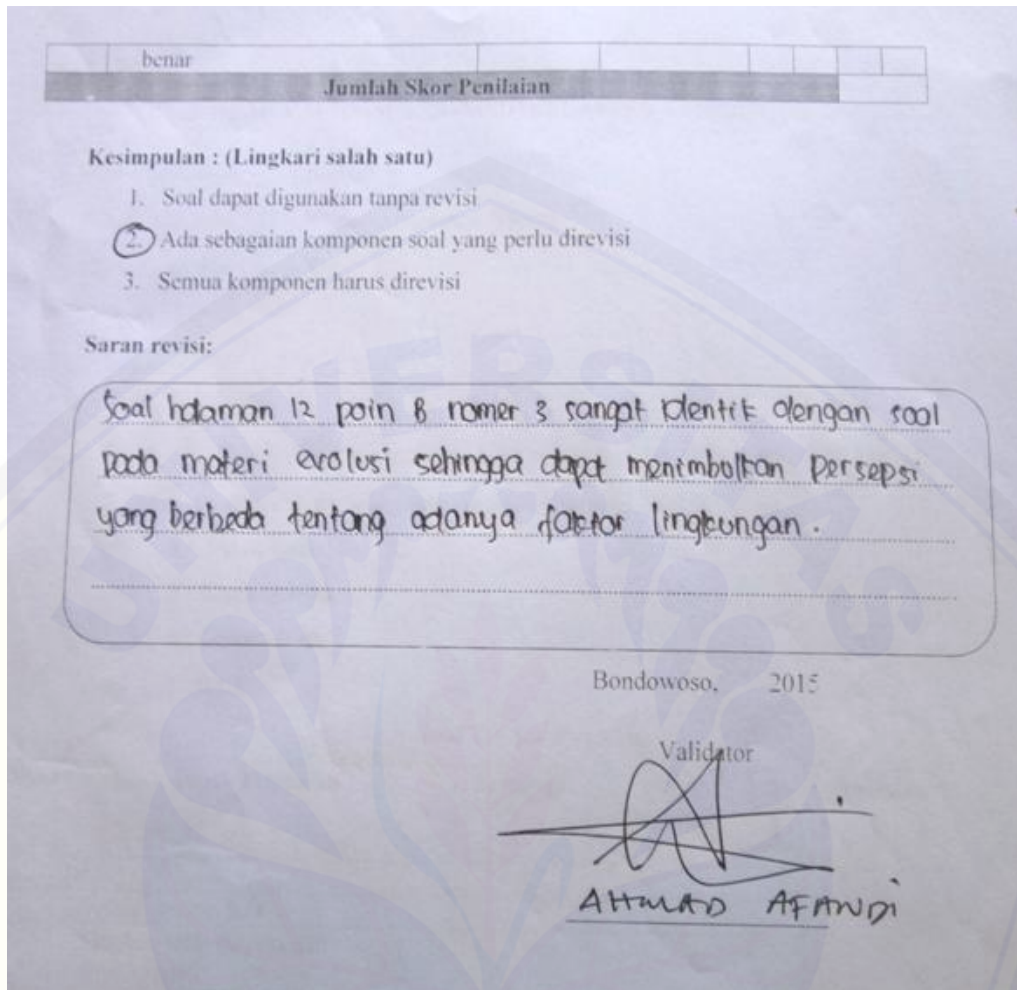 benar
Jumlah Skor Penilaian
Kesimpulan : (Lingkari salah satu)
1. Soal dapat digunakan tanpa revisi
2. Ada sebagaian komponen soal yang perlu direvisi
3. Semua komponen harus direvisi
Saran revisi:
Soal halaman 12 poin B nomer 3 sangat identik dengan soal
pada materi evolusi sehingga dapat menimbulkan persepsi
yang berbeda tentang adanya faktor lingkungan.
Bondowoso, 2015
Validator
AHMAD AFANDI
UNIVERSITAS